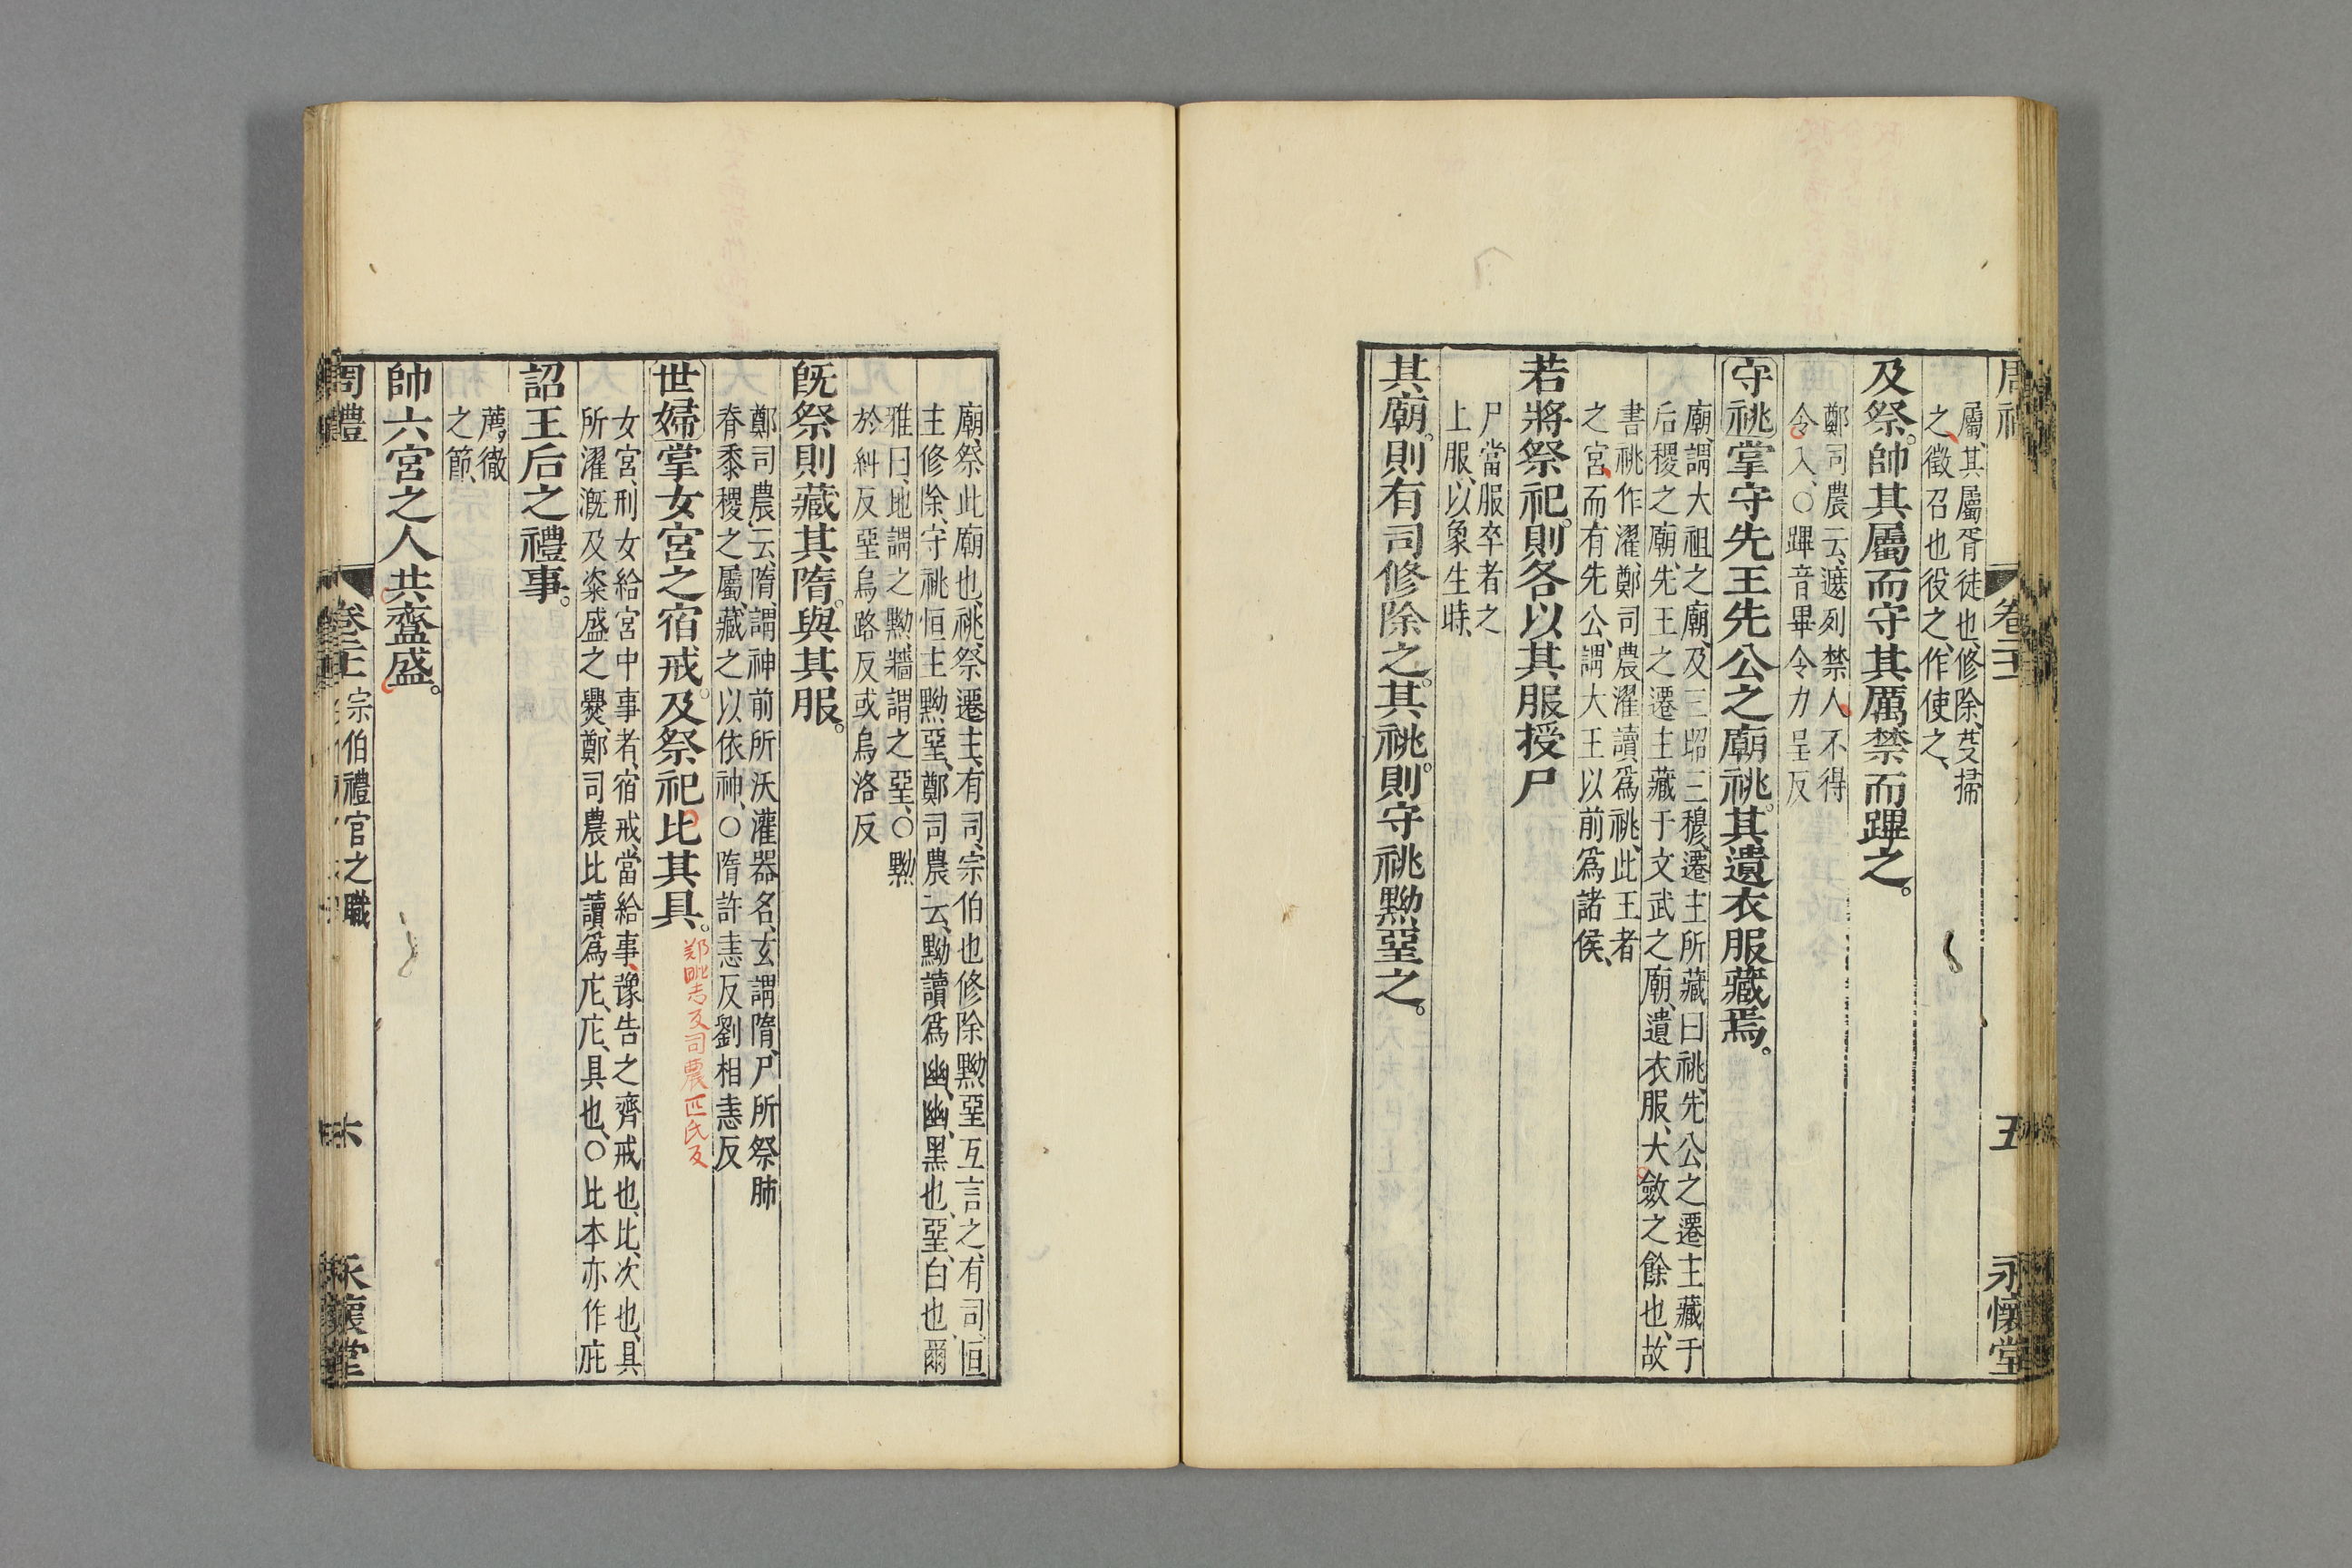 屬、其屬胥徒也、修除、芟掃
之、徵召也、役之、作使之、
及祭。帥其屬而守其厲禁而蹕之。
鄭司農云、遮列禁人、不得
令入、○蹕音畢令力呈反
守祧掌守先王先公之廟祧。其遺衣服藏焉。
廟、謂大祖之廟、及三昭三穆、遷主所藏曰祧、先公之遷主藏于
后稷之廟、先王之遷主藏于文武之廟、遺衣服、大斂之餘也、故
書祧作濯、鄭司農濯讀爲祧、此王者
之宮、而有先公、謂大王以前爲諸侯、
若將祭祀。則各以其服授尸
尸當服卒者之
上服、以象生時、
其廟。則有司修除之。其祧。則守祧黝堊之。
周禮 卷二十 五 永懷堂
廟、祭此廟也、祧、祭遷主、有司、宗伯也修除黝堊互言之、有司恒
主修除、守祧恒主黝堊、鄭司農云、黝讀爲幽、幽、黑也、堊、白也爾
雅曰、地謂之黝、牆謂之堊、○黝
於糾反堊烏路反或烏洛反
旣祭則藏其隋。與其服。
鄭司農云、隋、謂神前所沃灌器名、玄謂隋、尸所祭肺
脊黍稷之屬、藏之以依神、○隋許恚反劉相恚反
世婦掌女宮之宿戒。及祭祀比其具。
鄭毗志反司農匹氏反
女宮、刑女給宮中事者、宿戒、當給事、豫告之齊戒也、比、次也、具
所濯漑及粢盛之爨、鄭司農比讀爲庀、庀、具也、○比本亦作庇
詔王后之禮事。
薦徹
之節、
帥六宮之人共齍盛。
周禮 卷二十 宗伯禮官之職 六 永懷堂